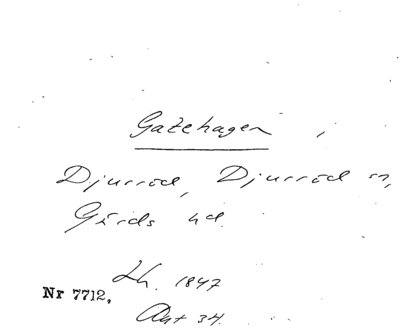 Gatehagen
Djurröd, Djurröd sn,
Gärds hd.
Lh. 1847
Nr 7712,
Akt 34.